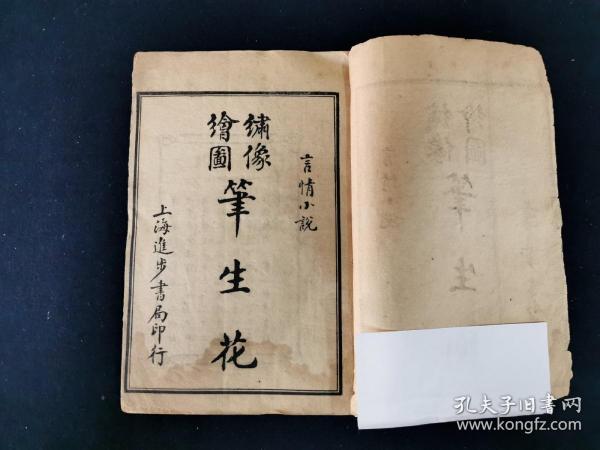 言情小說
繡像
繪圖
筆生花
上海進步書局印行
孔夫子旧书网
www.kongfz.com